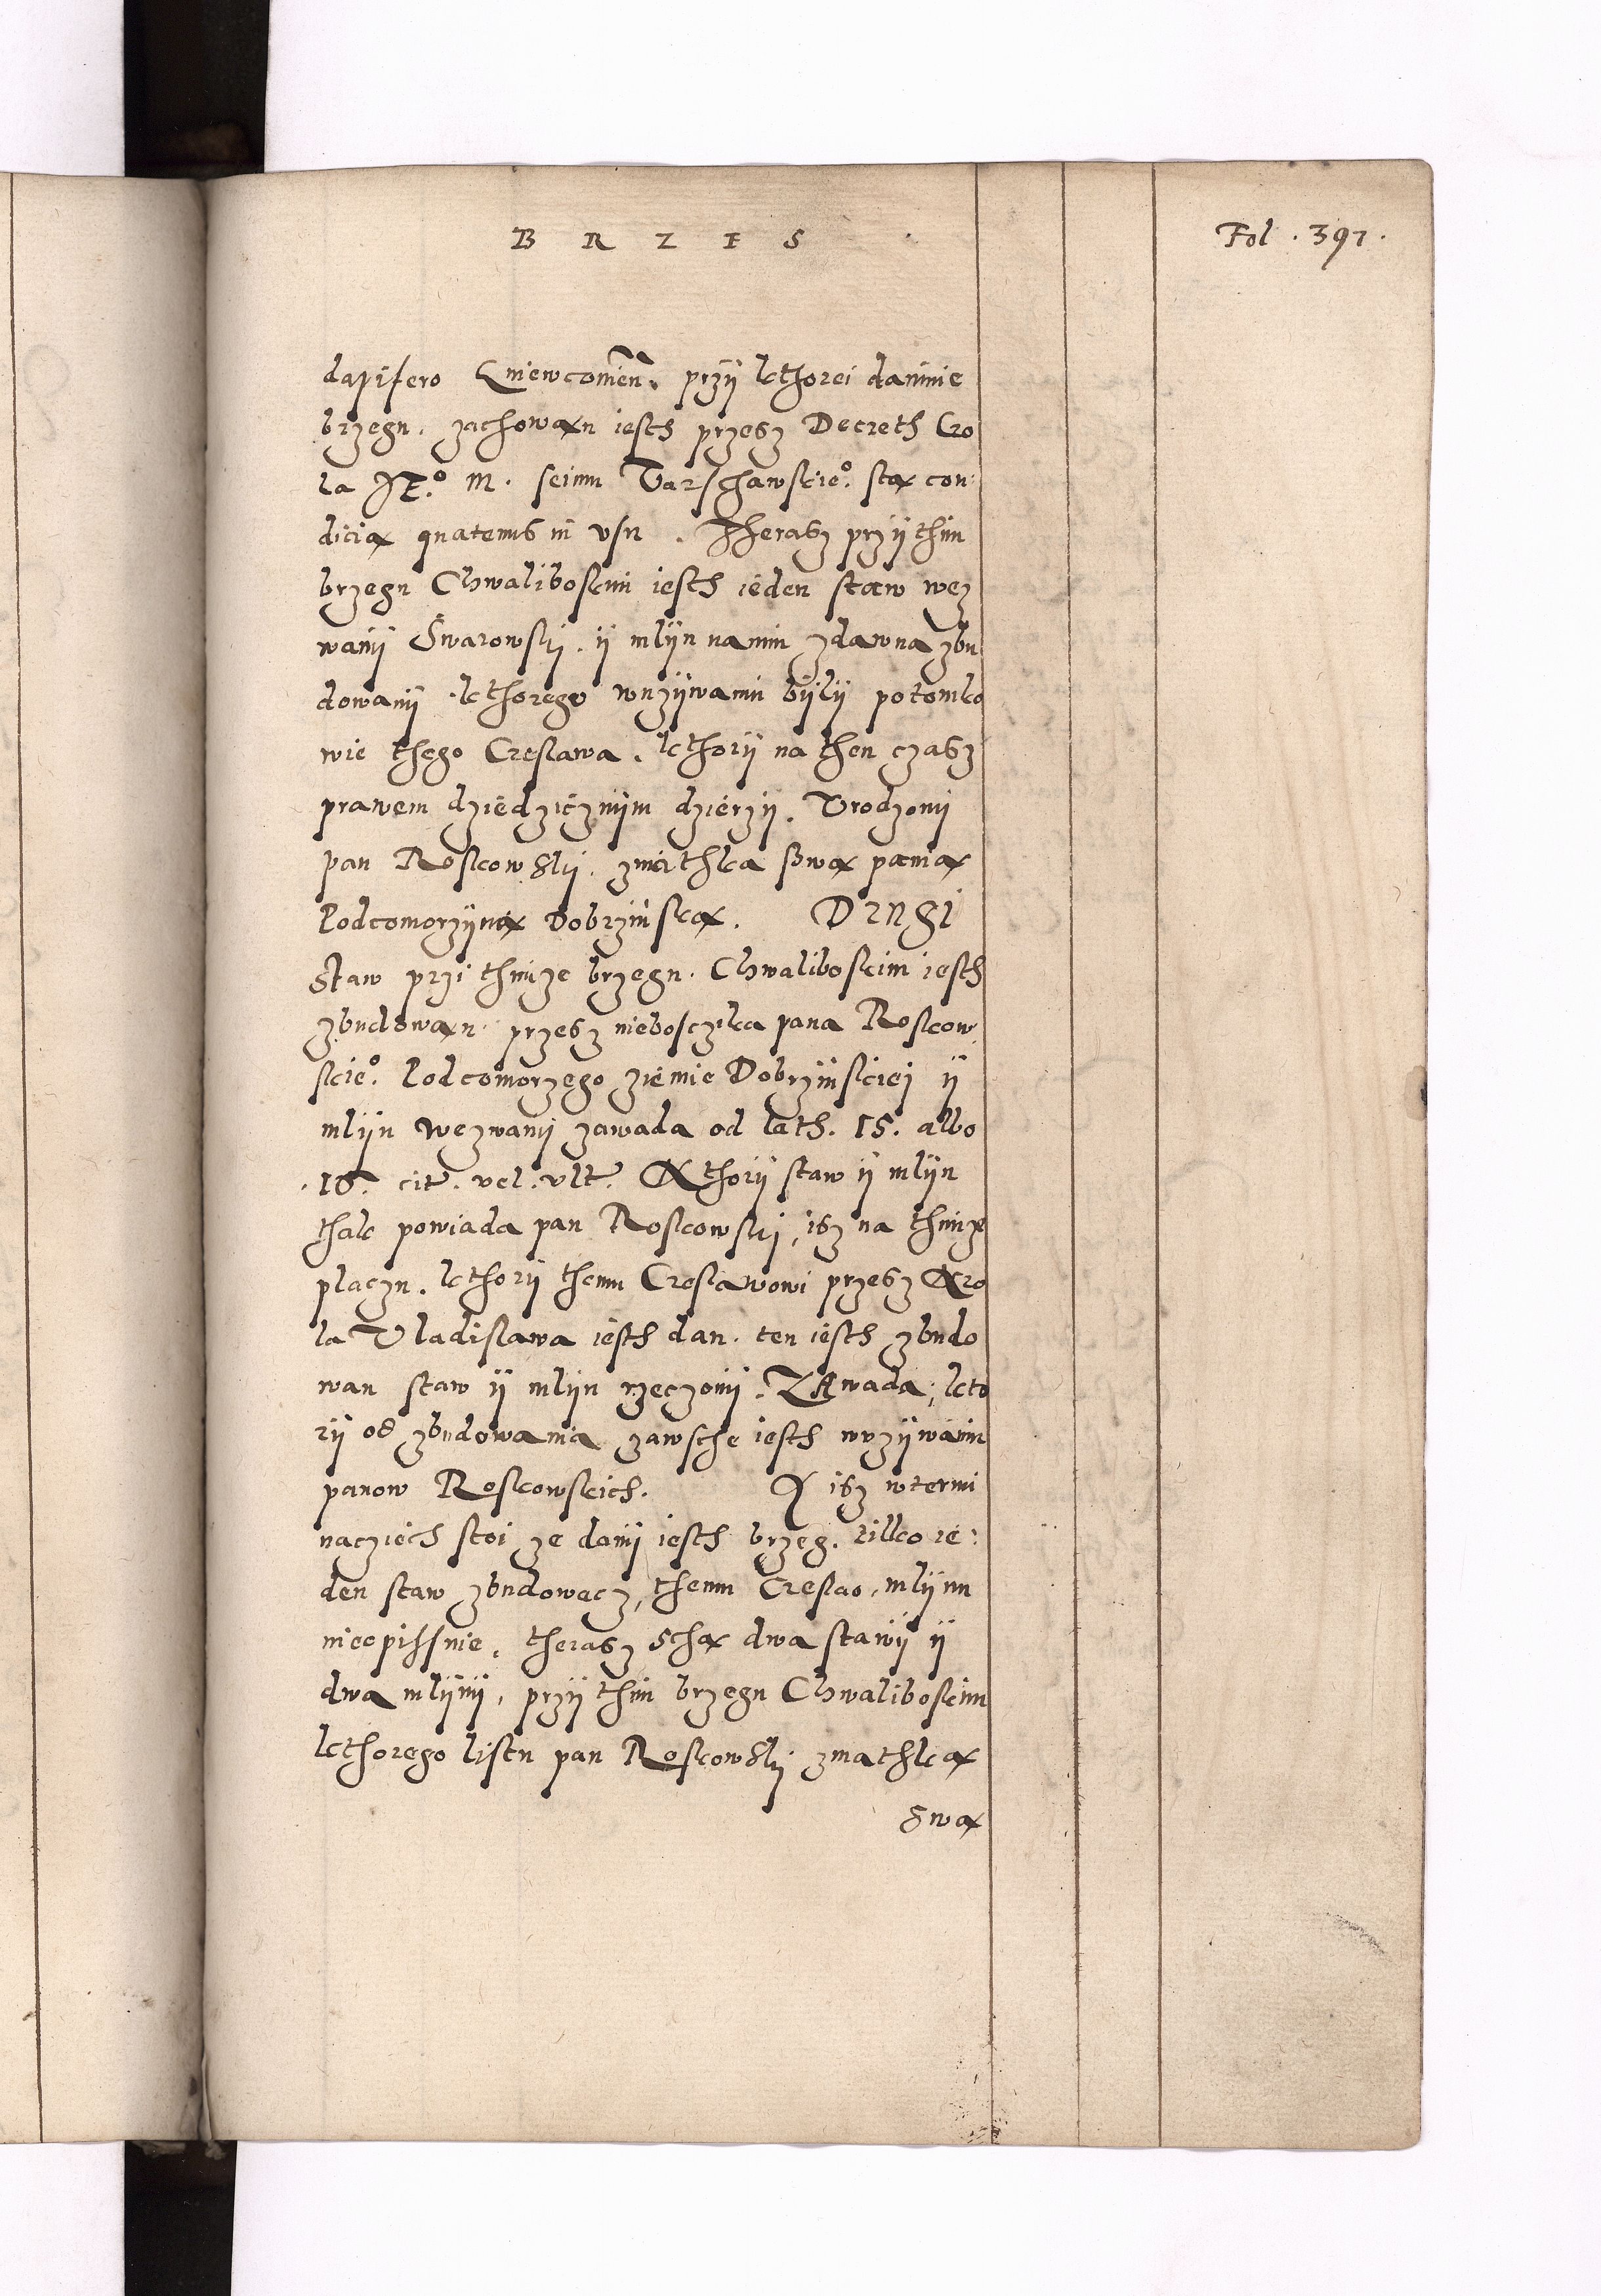 B R Z E S
Fol . 397 .
dapifero Gniewcomen. przÿ kthorei daninie
brzegu . zachowan iesth przesz Decreth Cro
la JE.º M . seimu Varschawskieº. sta con
dicia quatenus in usu . Therasz przÿ thim
brzegu Chwaliboskim iesth ieden staw wez
wanÿ Swarowskj . ÿ mlÿn na nim zdawna zbu
dowanÿ kthorego w uzÿwaniu bÿlÿ potomko
wie thego Creslawa . kthorÿ na then czasz
prawem dziedzicznÿm dzierzÿ . Vrodzonÿ
pan Roskowskÿ . z mathka swa pania
Podcomorzÿna Dobrzinska . Drugi
Staw przi thimze brzegu . Chwaliboskim iesth
zbudowan przesz nieboszczika pana Roskow
skieº. Podcomorzego ziemie Dobrzinskiej ÿ
mlÿn wezwanÿ zawada od lath . 15 . albo
. 16 . cit . vel . ult . Kthorÿ staw ÿ mlÿn
thak powiada pan Roskowskj , isz na thimze
placzu . kthorÿ themu Creslawowi przesz Kro
la Vladislawa iesth dan . ten iesth zbudo
wan staw ÿ mlÿn rzeczonÿ . ZAwada , kto
rÿ od zbudowania zawsche iesth w uzÿwaniu
panow Roskowskich . A isz w termi
nacziech stoi ze danÿ iesth brzeg . tilko ie
den staw zbudowacz , themu Creslao , mlÿnu
nieopissuie , therasz stha dwa stawÿ ÿ
dwa mlÿnÿ , przÿ thim brzegu Chwaliboskim
kthorego listu pan Roskowskj z mathka
swa